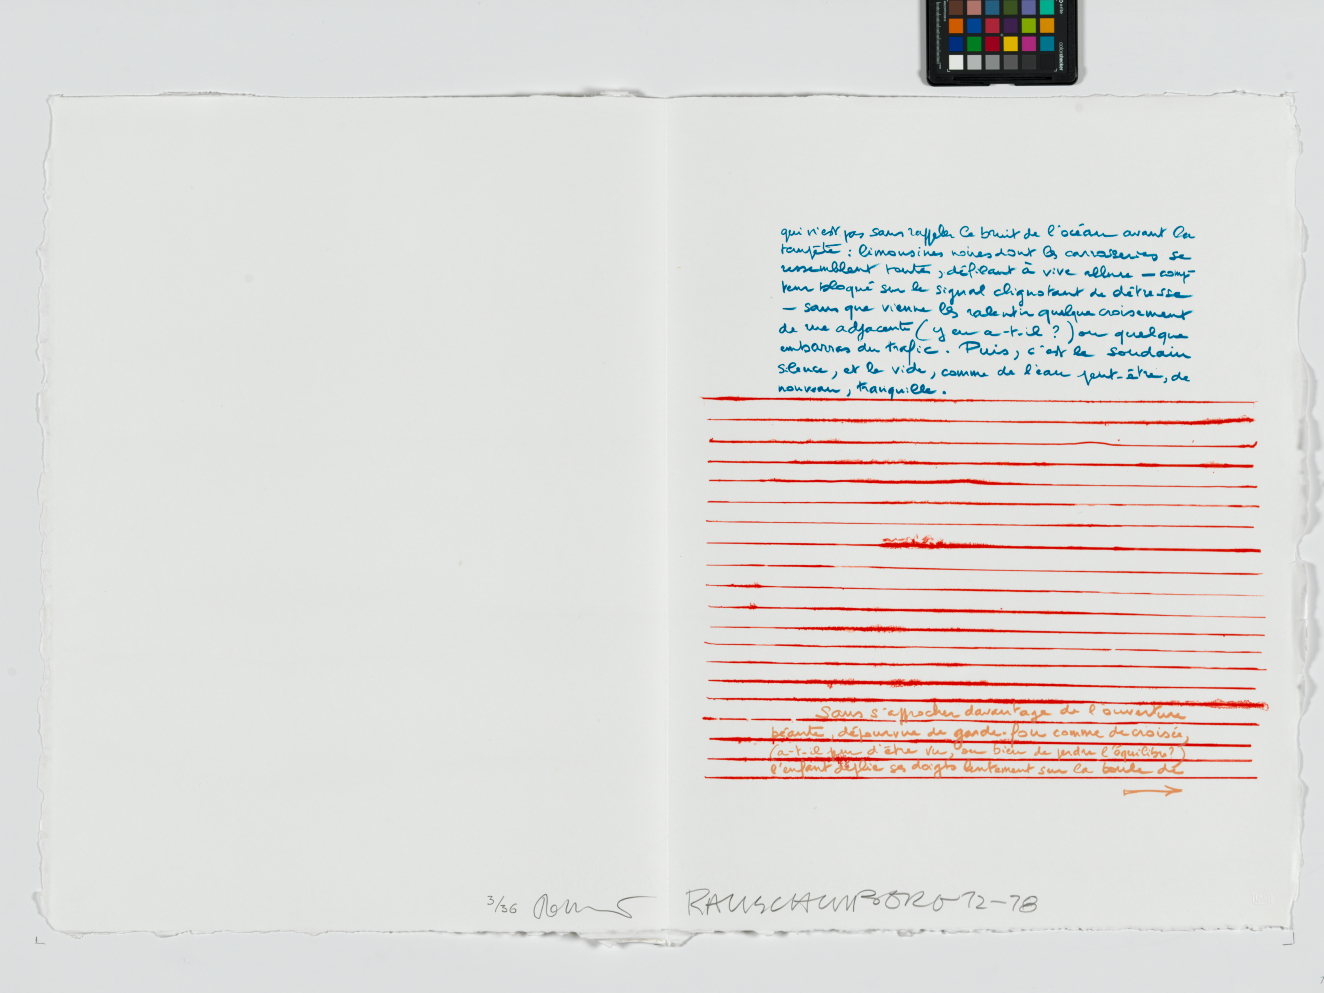 qui n'est pas sans rappeler le bruit de l'océan avant la
tempête : limousines noires dont les carrosseries se
ressemblent toutes, défilant à vive allure — comp-
teur bloqué sur le signal clignotant de détresse
— sans que vienne les ralentir quelque croisement
de rue adjacente (y en a-t-il ?) ou quelque
embarras du trafic. Puis, c'est le soudain
silence, et le vide, comme de l'eau peut-être, de
nouveau, tranquille.
Sans s'approcher davantage de l'ouverture
béante, dépourvue de garde-fou comme de croisée,
(a-t-il peur d'être vu, ou bien de perdre l'équilibre?)
l'enfant déplie ses doigts lentement sur la boule de
3/36 RAUSCHENBERG 72-78